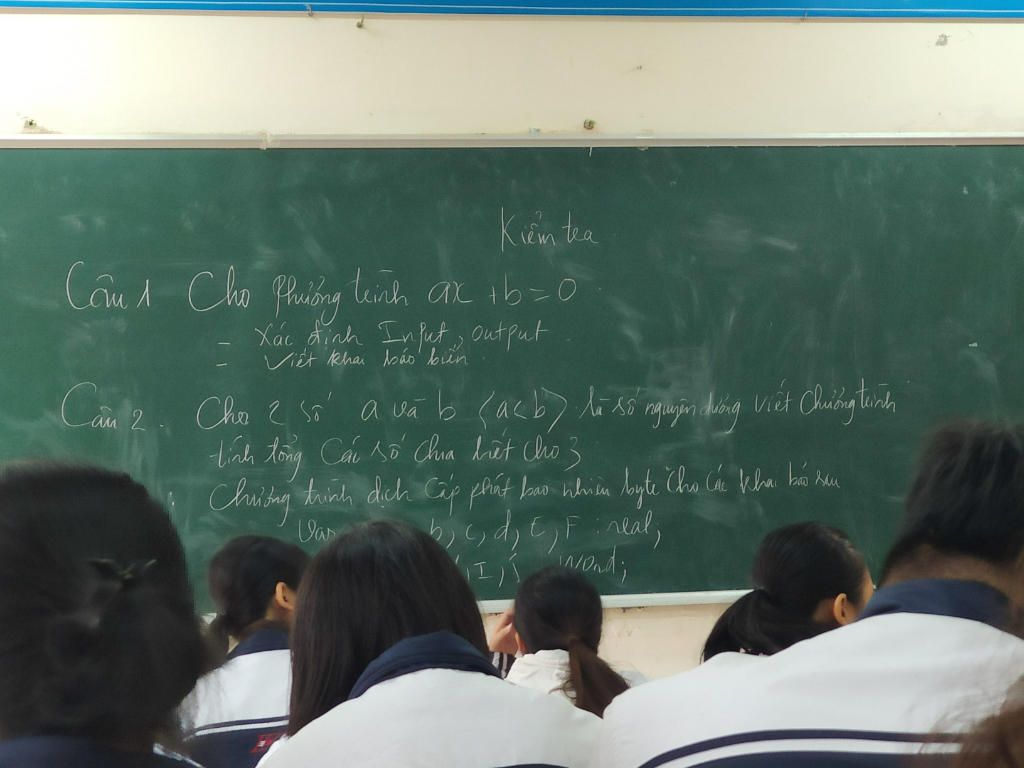 Kiểm tra
Câu 1 Cho phương trình ax + b = 0
- Xác định Input, output
- Viết khai báo biến
Câu 2. Cho 2 số a và b (a<b) là số nguyên dương viết chương trình
tính tổng các số chia hết cho 3
Chương trình dịch cấp phát bao nhiêu byte cho các khai báo sau
Var b, c, d, E, F : real;
, I, j word;